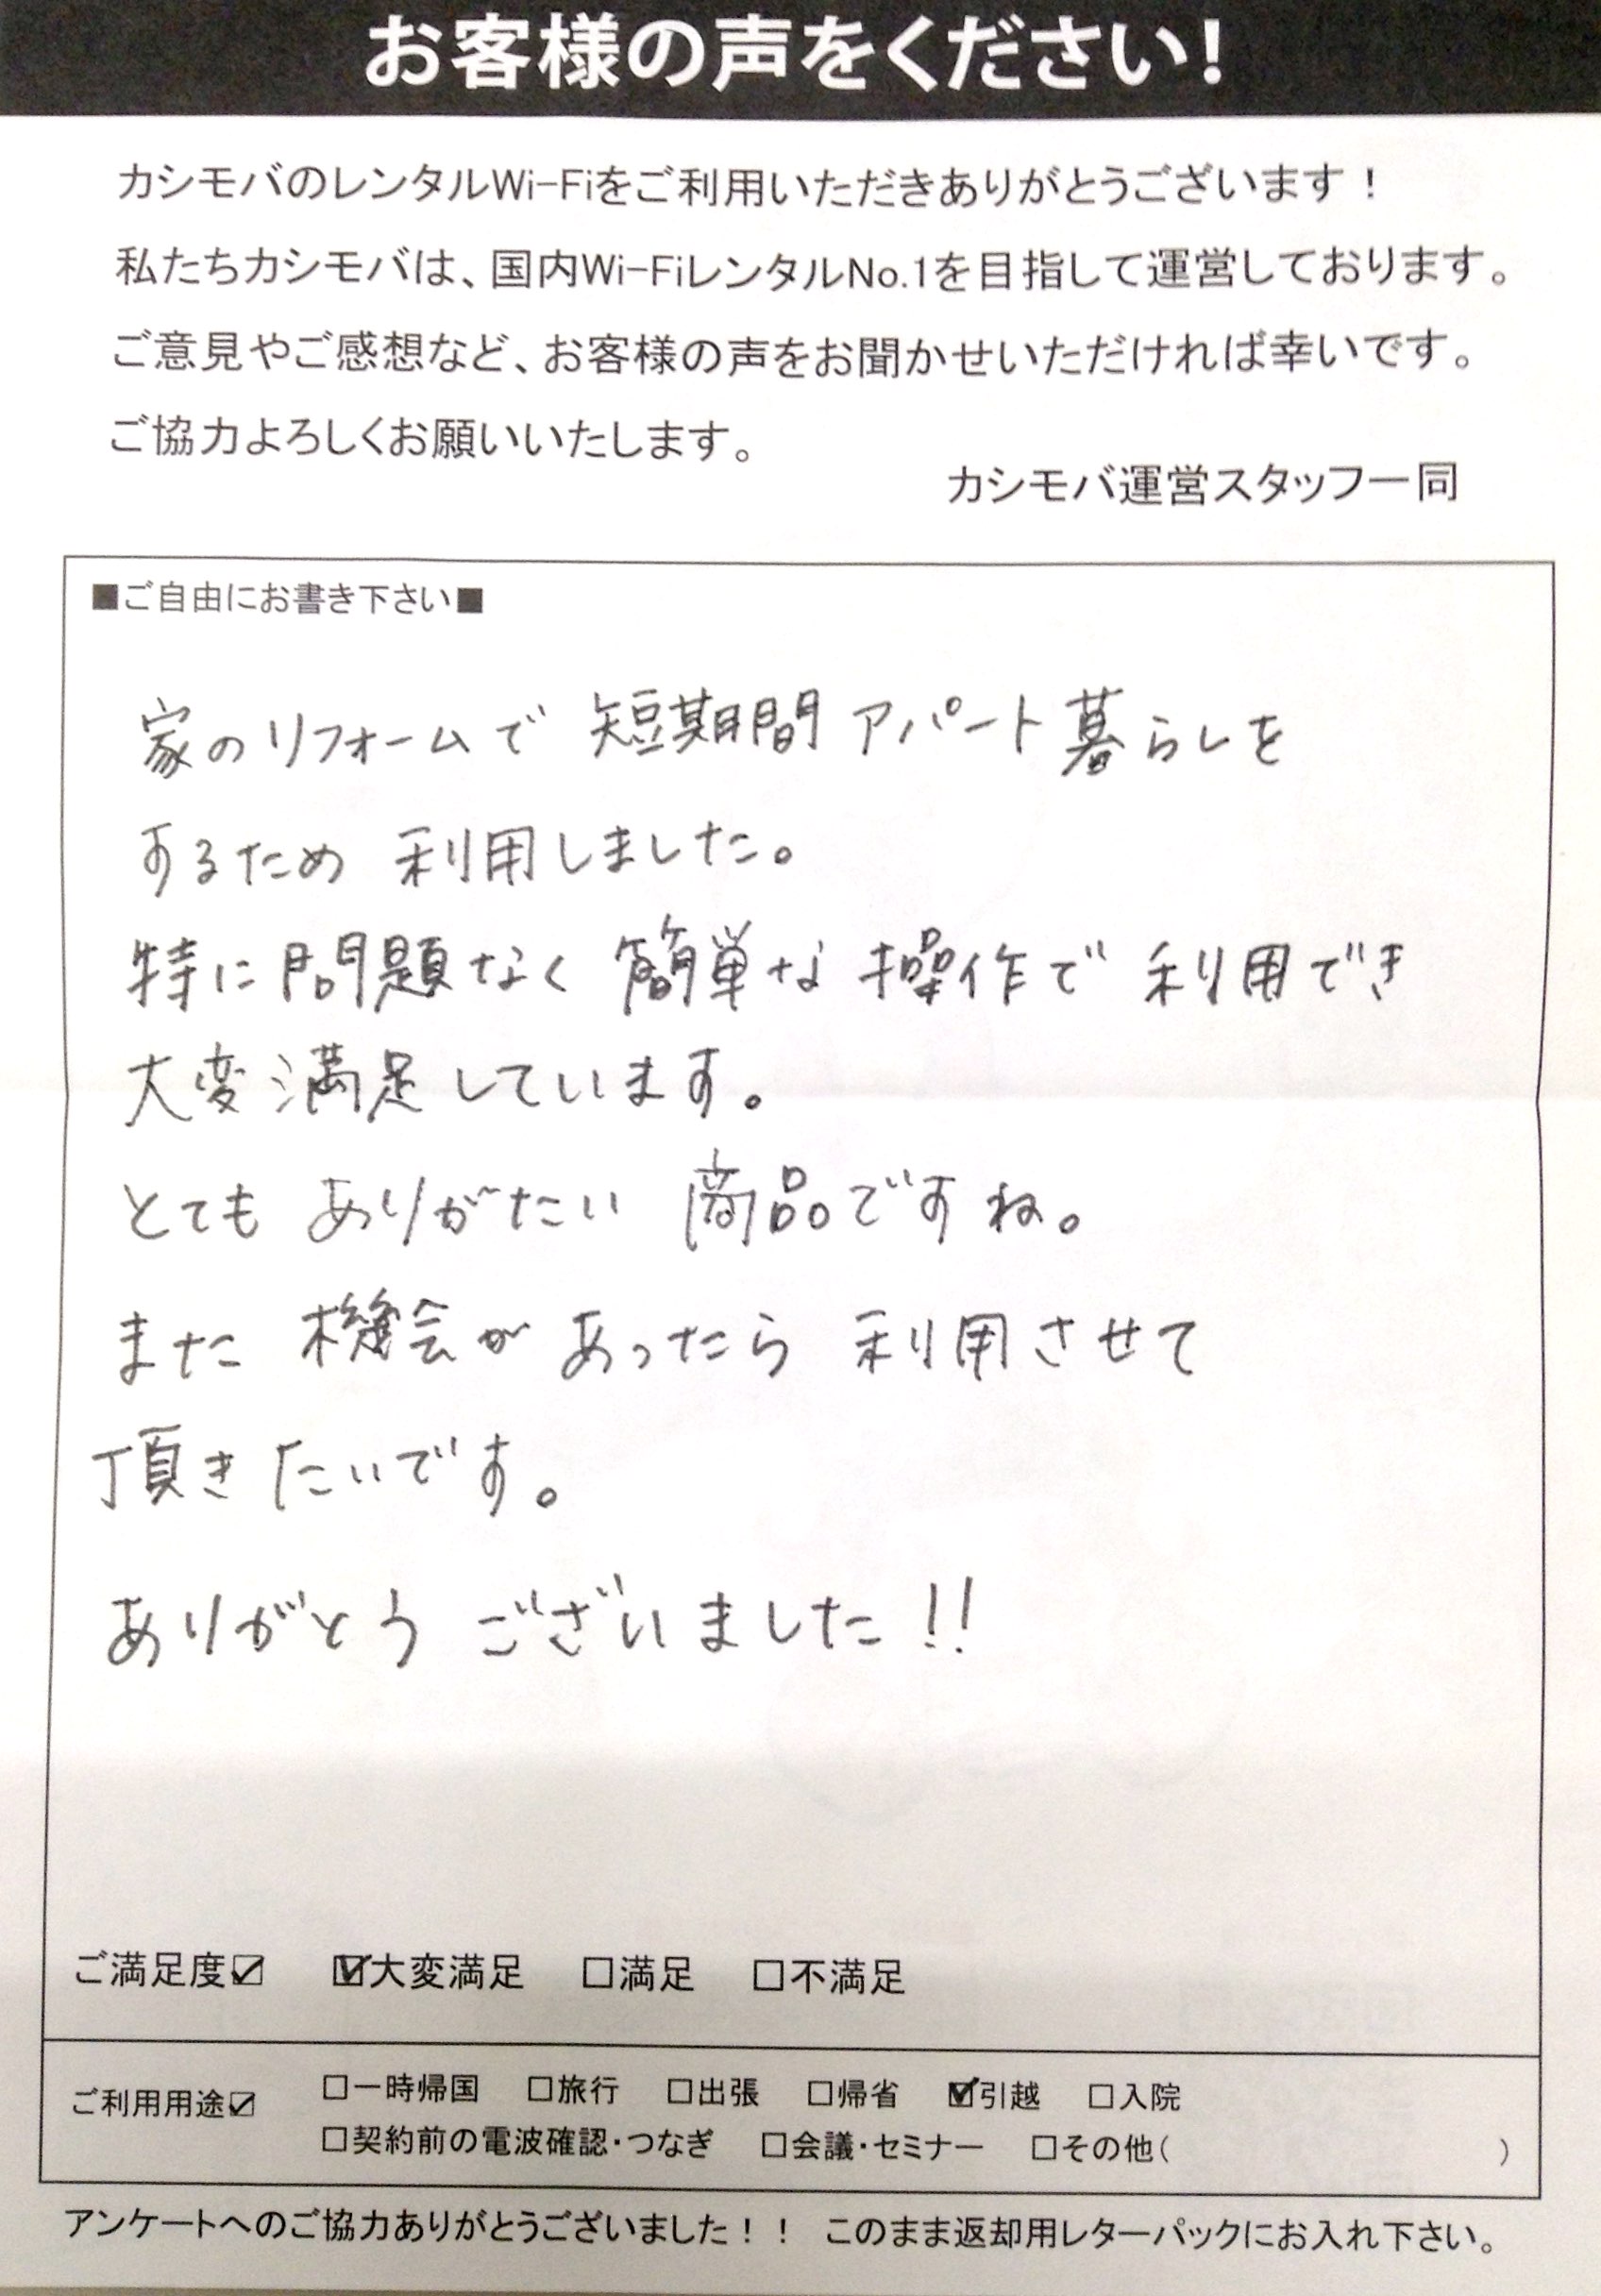 お客様の声をください!
カシモバのレンタルWi-Fiをご利用いただきありがとうございます！
私たちカシモバは、国内Wi-FiレンタルNo.1を目指して運営しております。
ご意見やご感想など、お客様の声をお聞かせいただければ幸いです。
ご協力よろしくお願いいたします。
カシモバ運営スタッフ一同
■ご自由にお書き下さい■
家のリフォームで 短期間 アパート暮らしを
するため 利用しました。
特に問題なく 簡単な 操作で 利用でき
大変満足しています。
とても ありがたい 商品ですね。
また 機会が あったら 利用させて
頂きたいです。
ありがとう ございました!!
ご満足度☑ ☑大変満足 □満足 □不満足
ご利用用途☑ □一時帰国 □旅行 □出張 □帰省 ☑引越 □入院
□契約前の電波確認・つなぎ □会議・セミナー □その他( )
アンケートへのご協力ありがとうございました！！ このまま返却用レターパックにお入れ下さい。